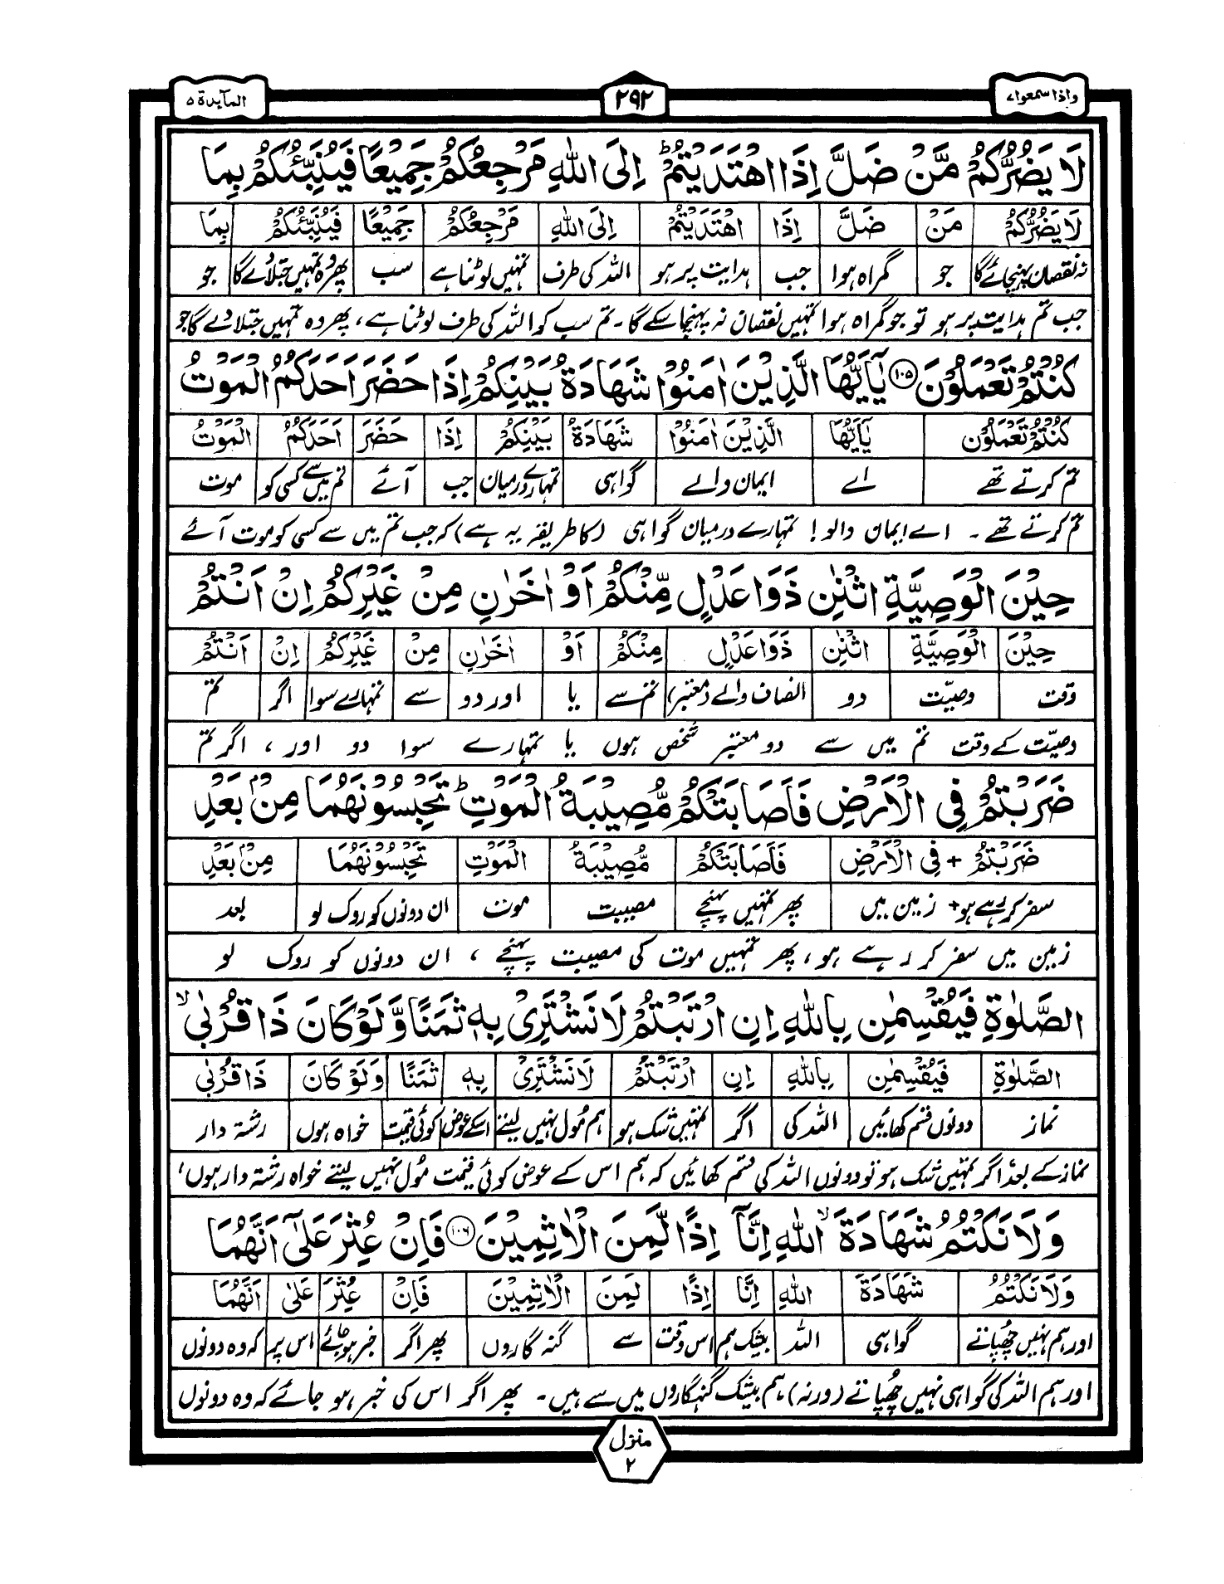 واذا سمعوا ۷
۲۹۲
المآیدة ۵
لَا يَضُرُّكُمْ مَّنْ ضَلَّ اِذَا اهْتَدَيْتُمْ ؕ اِلَى اللّٰهِ مَرْجِعُكُمْ جَمِيْعًا فَيُنَبِّئُكُمْ بِمَا
لَا يَضُرُّكُمْ مَنْ ضَلَّ اِذَا اهْتَدَيْتُمْ اِلَى اللّٰهِ مَرْجِعُكُمْ جَمِيْعًا فَيُنَبِّئُكُمْ بِمَا
نہ نقصان پہنچائے گا جو گمراہ ہوا جب ہدایت پر ہو اللہ کی طرف تمہیں لوٹنا ہے سب پھر وہ تمہیں جتلا دے گا جو
جب تم ہدایت پر ہو تو جو گمراہ ہوا تمہیں نقصان نہ پہنچا سکے گا۔ تم سب کو اللہ کی طرف لوٹنا ہے، پھر وہ تمہیں جتلا دے گا جو
كُنْتُمْ تَعْمَلُوْنَ ۱۰۵ يٰٓاَيُّهَا الَّذِيْنَ اٰمَنُوْا شَهَادَةُ بَيْنِكُمْ اِذَا حَضَرَ اَحَدَكُمُ الْمَوْتُ
كُنْتُمْ تَعْمَلُوْنَ يٰٓاَيُّهَا الَّذِيْنَ اٰمَنُوْا شَهَادَةُ بَيْنِكُمْ اِذَا حَضَرَ اَحَدَكُمُ الْمَوْتُ
تم کرتے تھے اے ایمان والے گواہی تمہارے درمیان جب آئے تم میں سے کسی کو موت
تم کرتے تھے ۔ اے ایمان والو! تمہارے درمیان گواہی (کا طریقہ یہ ہے) کہ جب تم میں سے کسی کو موت آئے
حِيْنَ الْوَصِيَّةِ اثْنٰنِ ذَوَا عَدْلٍ مِّنْكُمْ اَوْ اٰخَرٰنِ مِنْ غَيْرِكُمْ اِنْ اَنْتُمْ
حِيْنَ الْوَصِيَّةِ اثْنٰنِ ذَوَا عَدْلٍ مِنْكُمْ اَوْ اٰخَرٰنِ مِنْ غَيْرِكُمْ اِنْ اَنْتُمْ
وقت وصیّت دو انصاف والے (معتبر) تم سے یا اور دو سے تمہارے سوا اگر تم
وصیّت کے وقت تم میں سے دو معتبر شخص ہوں یا تمہارے سوا دو اور ، اگر تم
ضَرَبْتُمْ فِى الْاَرْضِ فَاَصَابَتْكُمْ مُّصِيْبَةُ الْمَوْتِ ؕ تَحْبِسُوْنَهُمَا مِنْۢ بَعْدِ
ضَرَبْتُمْ + فِى الْاَرْضِ فَاَصَابَتْكُمْ مُّصِيْبَةُ الْمَوْتِ تَحْبِسُوْنَهُمَا مِنْۢ بَعْدِ
سفر کر رہے ہو + زمین میں پھر تمہیں پہنچے مصیبت موت ان دونوں کو روک لو بعد
زمین میں سفر کر رہے ہو، پھر تمہیں موت کی مصیبت پہنچے ، ان دونوں کو روک لو
الصَّلٰوةِ فَيُقْسِمٰنِ بِاللّٰهِ اِنِ ارْتَبْتُمْ لَا نَشْتَرِىْ بِهٖ ثَمَنًا وَّلَوْ كَانَ ذَا قُرْبٰى ۙ
الصَّلٰوةِ فَيُقْسِمٰنِ بِاللّٰهِ اِنِ ارْتَبْتُمْ لَا نَشْتَرِىْ بِهٖ ثَمَنًا وَلَوْ كَانَ ذَا قُرْبٰى
نماز دونوں قسم کھائیں اللہ کی اگر تمہیں شک ہو ہم مول نہیں لیتے اسکے عوض کوئی قیمت خواہ ہوں رشتہ دار
نماز کے بعد اگر تمہیں شک ہو تو دونوں اللہ کی قسم کھائیں کہ ہم اس کے عوض کوئی قیمت مول نہیں لیتے خواہ رشتہ دار ہوں،
وَلَا نَكْتُمُ شَهَادَةَ ۙ اللّٰهِ اِنَّآ اِذًا لَّمِنَ الْاٰثِمِيْنَ ۱۰۶ فَاِنْ عُثِرَ عَلٰٓى اَنَّهُمَا
وَلَا نَكْتُمُ شَهَادَةَ اللّٰهِ اِنَّا اِذًا لَمِنَ الْاٰثِمِيْنَ فَاِنْ عُثِرَ عَلٰى اَنَّهُمَا
اور ہم نہیں چھپاتے گواہی اللہ بیشک ہم اس وقت سے گنہ گاروں پھر اگر خبر ہو جائے اس پر کہ وہ دونوں
اور ہم اللہ کی گواہی نہیں چھپاتے (ورنہ) ہم بیشک گنہگاروں میں سے ہیں۔ پھر اگر اس کی خبر ہو جائے کہ وہ دونوں
منزل
۲